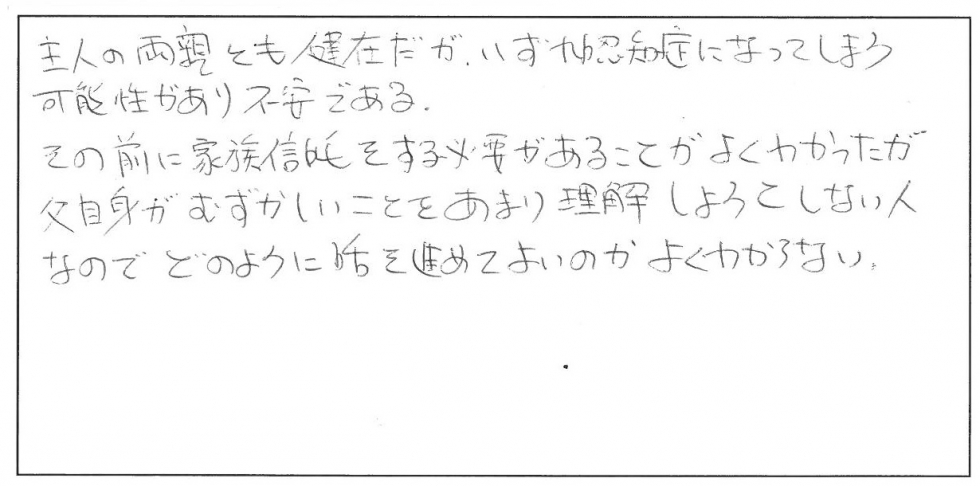 主人の両親とも健在だが、いずれ認知症になってしまう
可能性があり不安である.
その前に家族信託をする必要があることがよくわかったが
父自身がむずかしいことをあまり理解しようとしない人
なのでどのように話を進めてよいのかよくわからない.